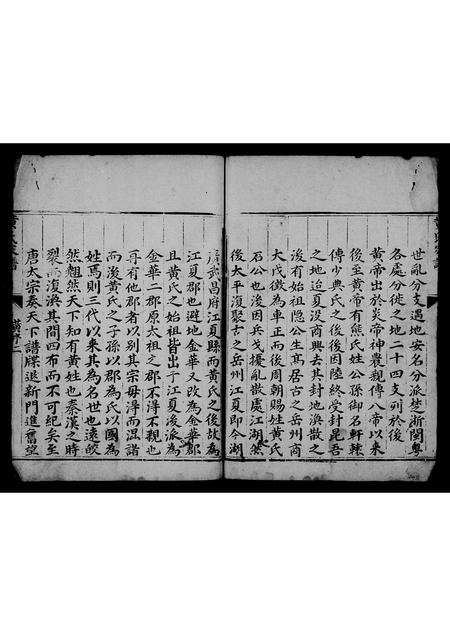 世亂分支遇地安名分派芝浙閩粵
各處分徙之地二十四支列於後
黃帝出於炎帝神農觀傳八帝以來
後至黃帝有熊氏姓公孫御名軒轅
傳少典氏之後後因陸終受封昆吾
之地迨夏没商興去其封地渙散之
後有始祖隱公生髙居古之岳州商
大戊徵為車正而後周朝賜姓黃氏
石公也後因兵戈擾亂散處江湖然
後太平復聚古之岳州江夏即今湖
廣武昌府江夏縣而黃氏之後故為
江夏郡也避地金華又改為金華郡
且黃氏之始祖皆出于江夏後派為
金華二郡原太祖之郡不淂不親也
再有他郡者以别其宗毋淂而混諸
而後黃氏之子孫以郡為氏以國為
姓焉則三代以来其為名世也遠皎
然翹然天下知有黃姓也秦漢之時
裂而復渙其間四布而不可紀矣至
唐太宗奏天下譜牒退新門進舊望